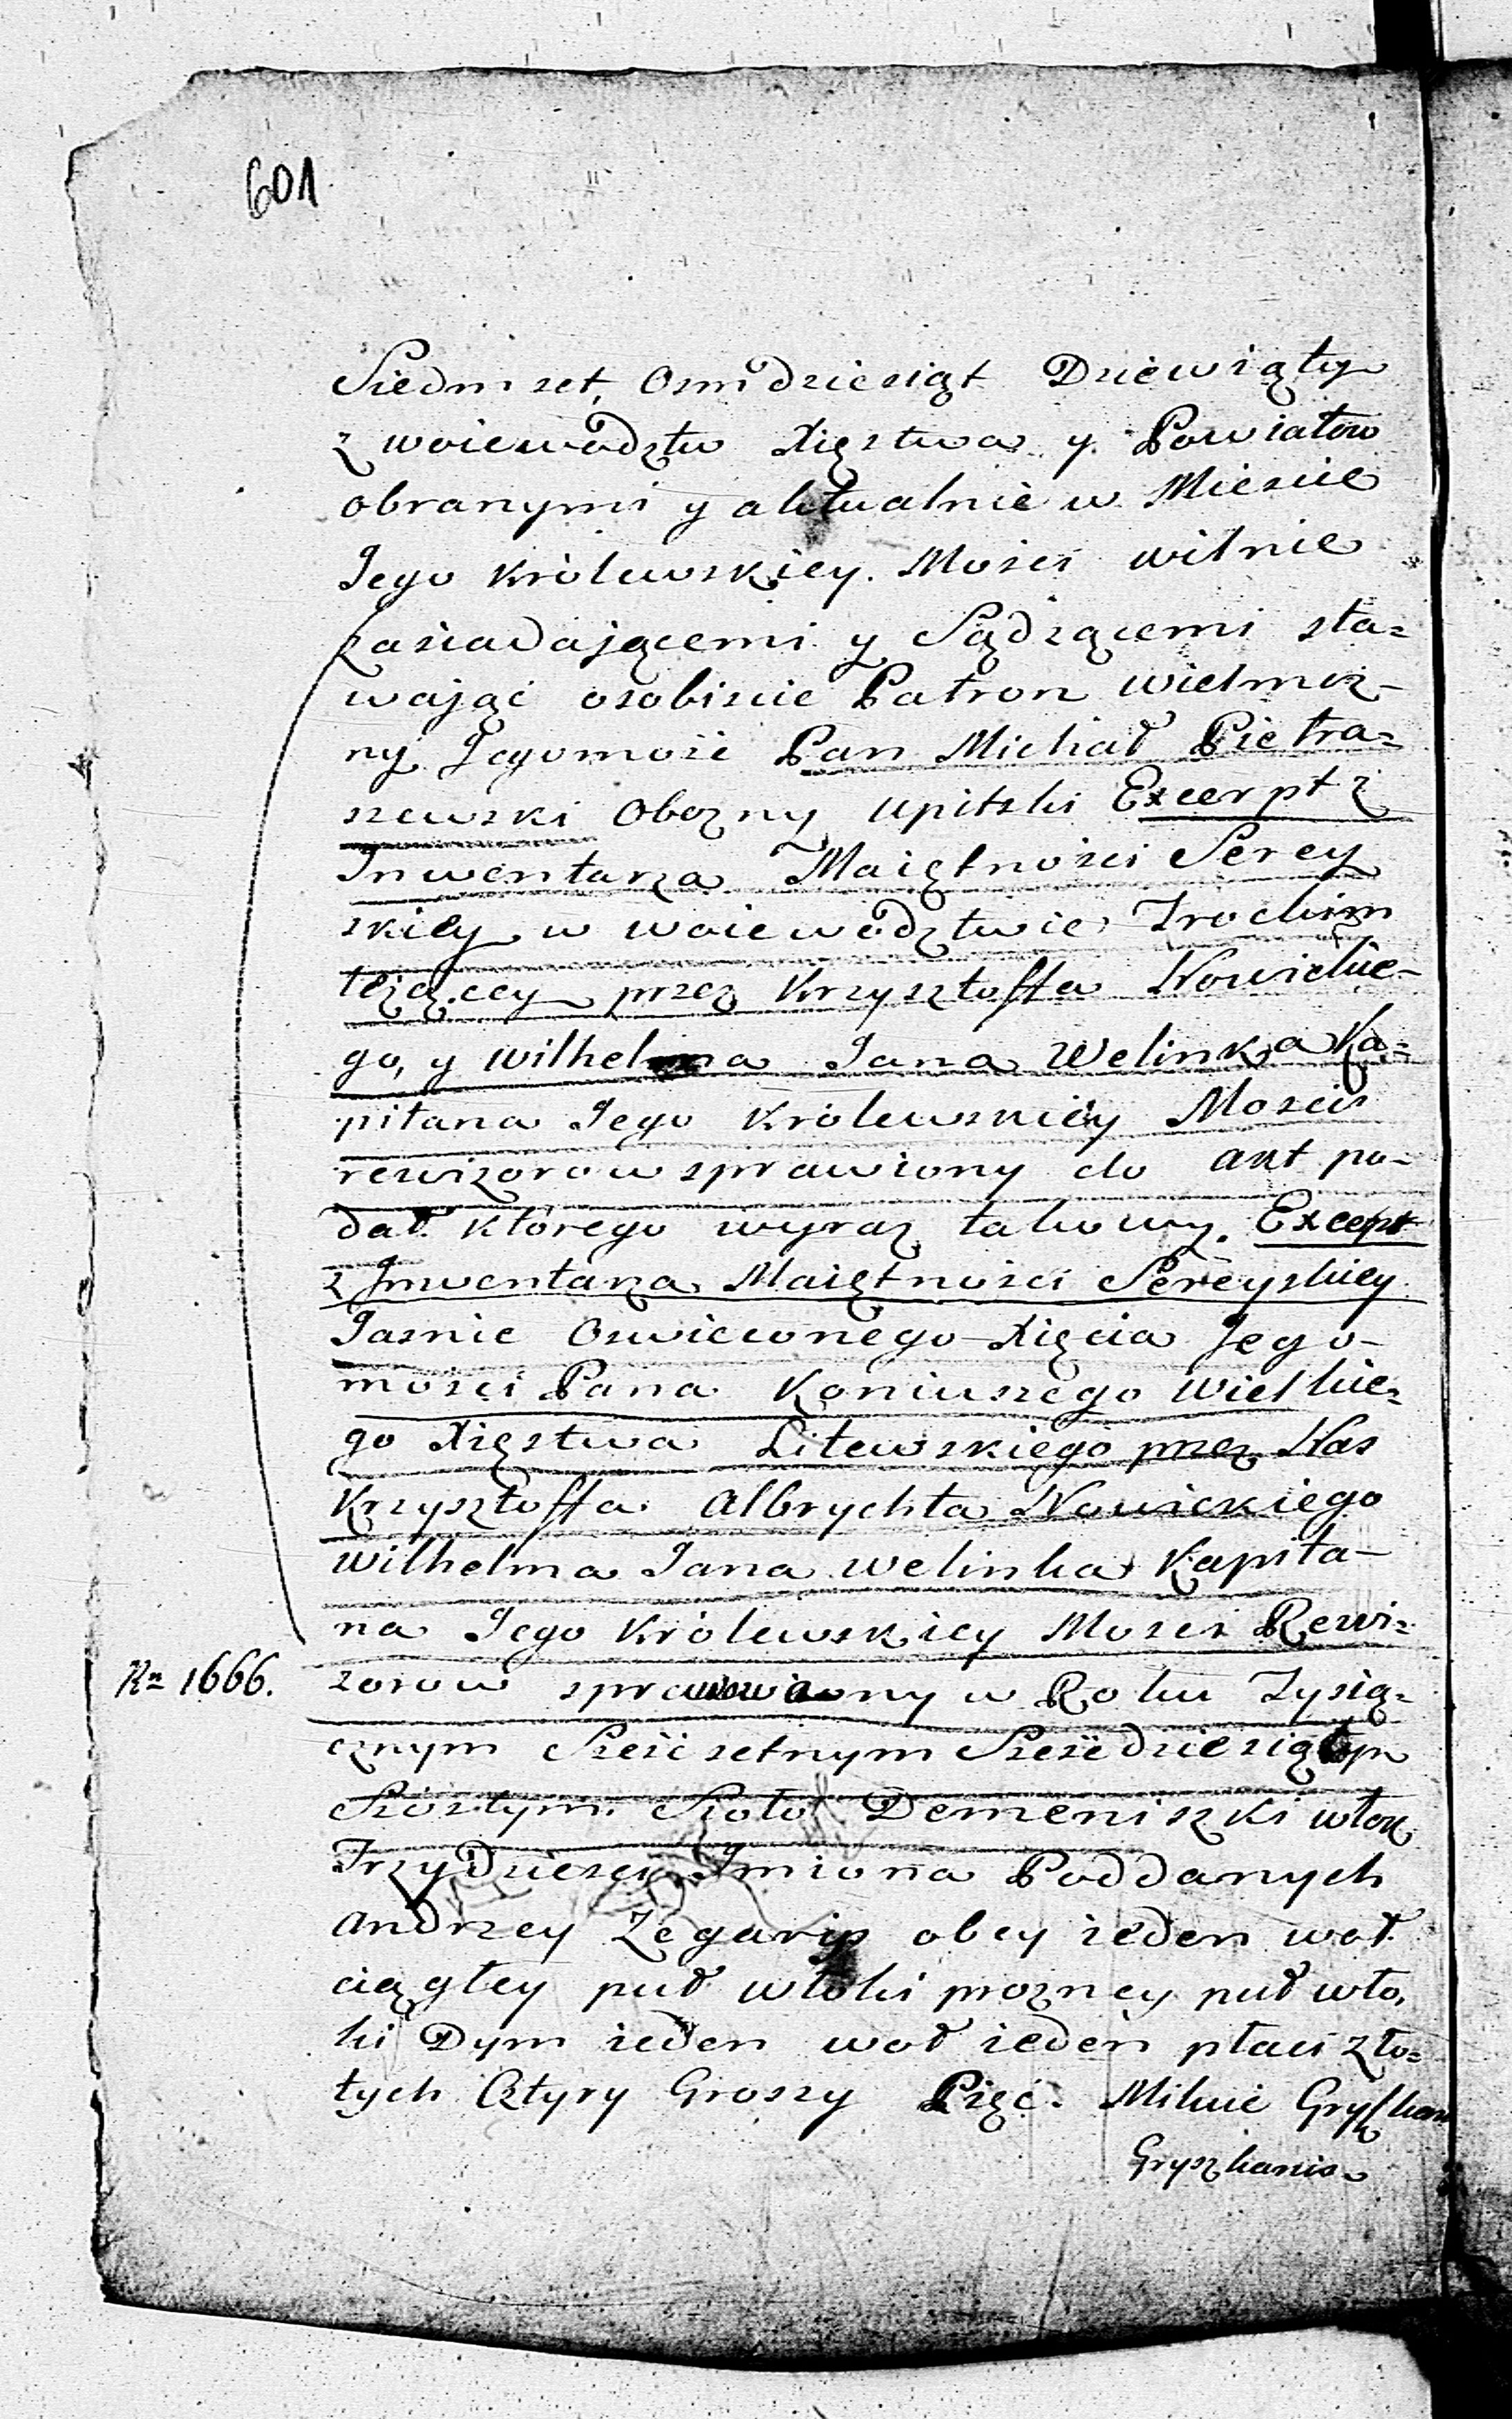 601
Siedmset, Osmdziesiąt Dziewiąty
z woiewodztw Xięstwa y Powiatow
obranymi y aktualnie w Miescie
Jego Królewskiey Mości wilnie
zasiadającemi y Sądzącemi sta=
wając osobiscie Patron wielmoż-
ny Jegomość Pan Michał Pietra=
szewski Obozny upitski Excerpt z
Inwentarza Maiętności Serey
skiey w woiewodztwie Trockim
leżącey przez Krzysztoffa Nowickie-
go, y wilhelma Jana Welinka Ka=
pitana Jego Królewskiey Mosci
rewizorow sprawiony do akt po-
dał którego wyraz takowy. Except
z Inwentarza Maiętności Sereyskiey
Jasnie Oswieconego Xięcia Jego-
mości Pana Koniuszego wielkie=
go Xięstwa Litewskiego przez Nas
Krzysztoffa Albrychta Nowickiego
wilhelma Jana welinka Kapita-
na Jego Królewskiey Mosci Rewi=
Rn 1666. zorow sprawiony w Roku Tysią=
cznym Sześćsetnym Sześćdziesiątym
Szóstym Sioło Demeniszki włok
Trzydzieści Imiona Poddanych
Andrzey Zegaryp obey ieden woł
ciągłey puł włoki prozney puł wło,
ki Dym ieden woł ieden płaci zło=
tych Cztyry Groszy Pięć. Mikuć Gryszkan
Gryszkanis